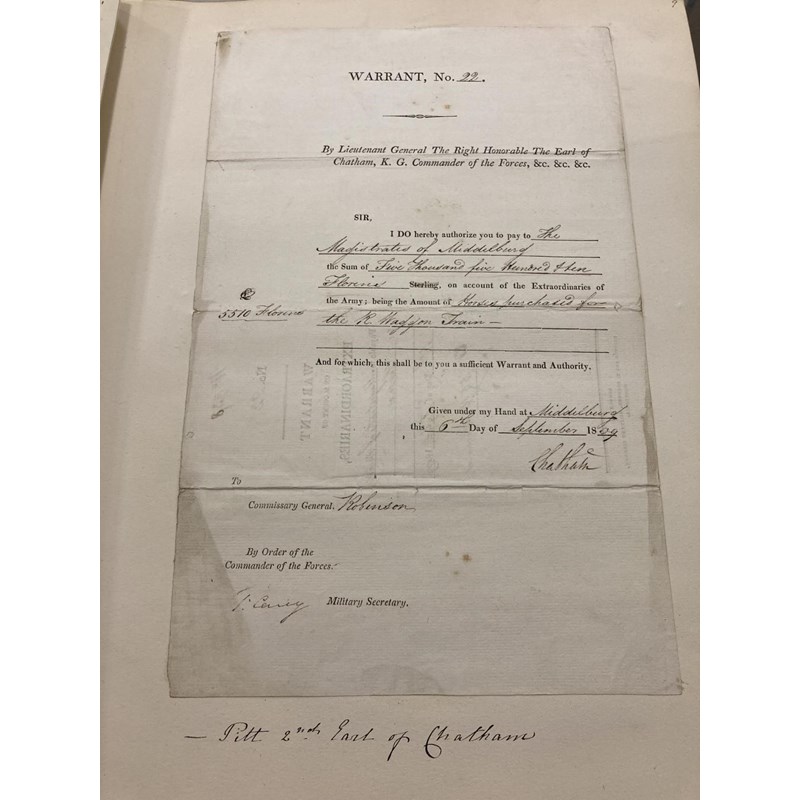 WARRANT, No. 22.
By Lieutenant General The Right Honorable The Earl of
Chatham, K. G. Commander of the Forces, &c. &c. &c.
SIR,
I DO hereby authorize you to pay to The
Magistrates of Middelburg
the Sum of Five Thousand five Hundred & ten
Florins Sterling, on account of the Extraordinaries of
5510 Florins
the Army; being the Amount of Horses purchased for
the R Waggon Train —
And for which, this shall be to you a sufficient Warrant and Authority.
Given under my Hand at Middelburg
this 6th Day of September 1809
Chatham
To
Commissary General, Robinson
By Order of the
Commander of the Forces.
Military Secretary.
— Pitt 2nd Earl of Chatham
WARRANT
EXTRAORDINARIES,